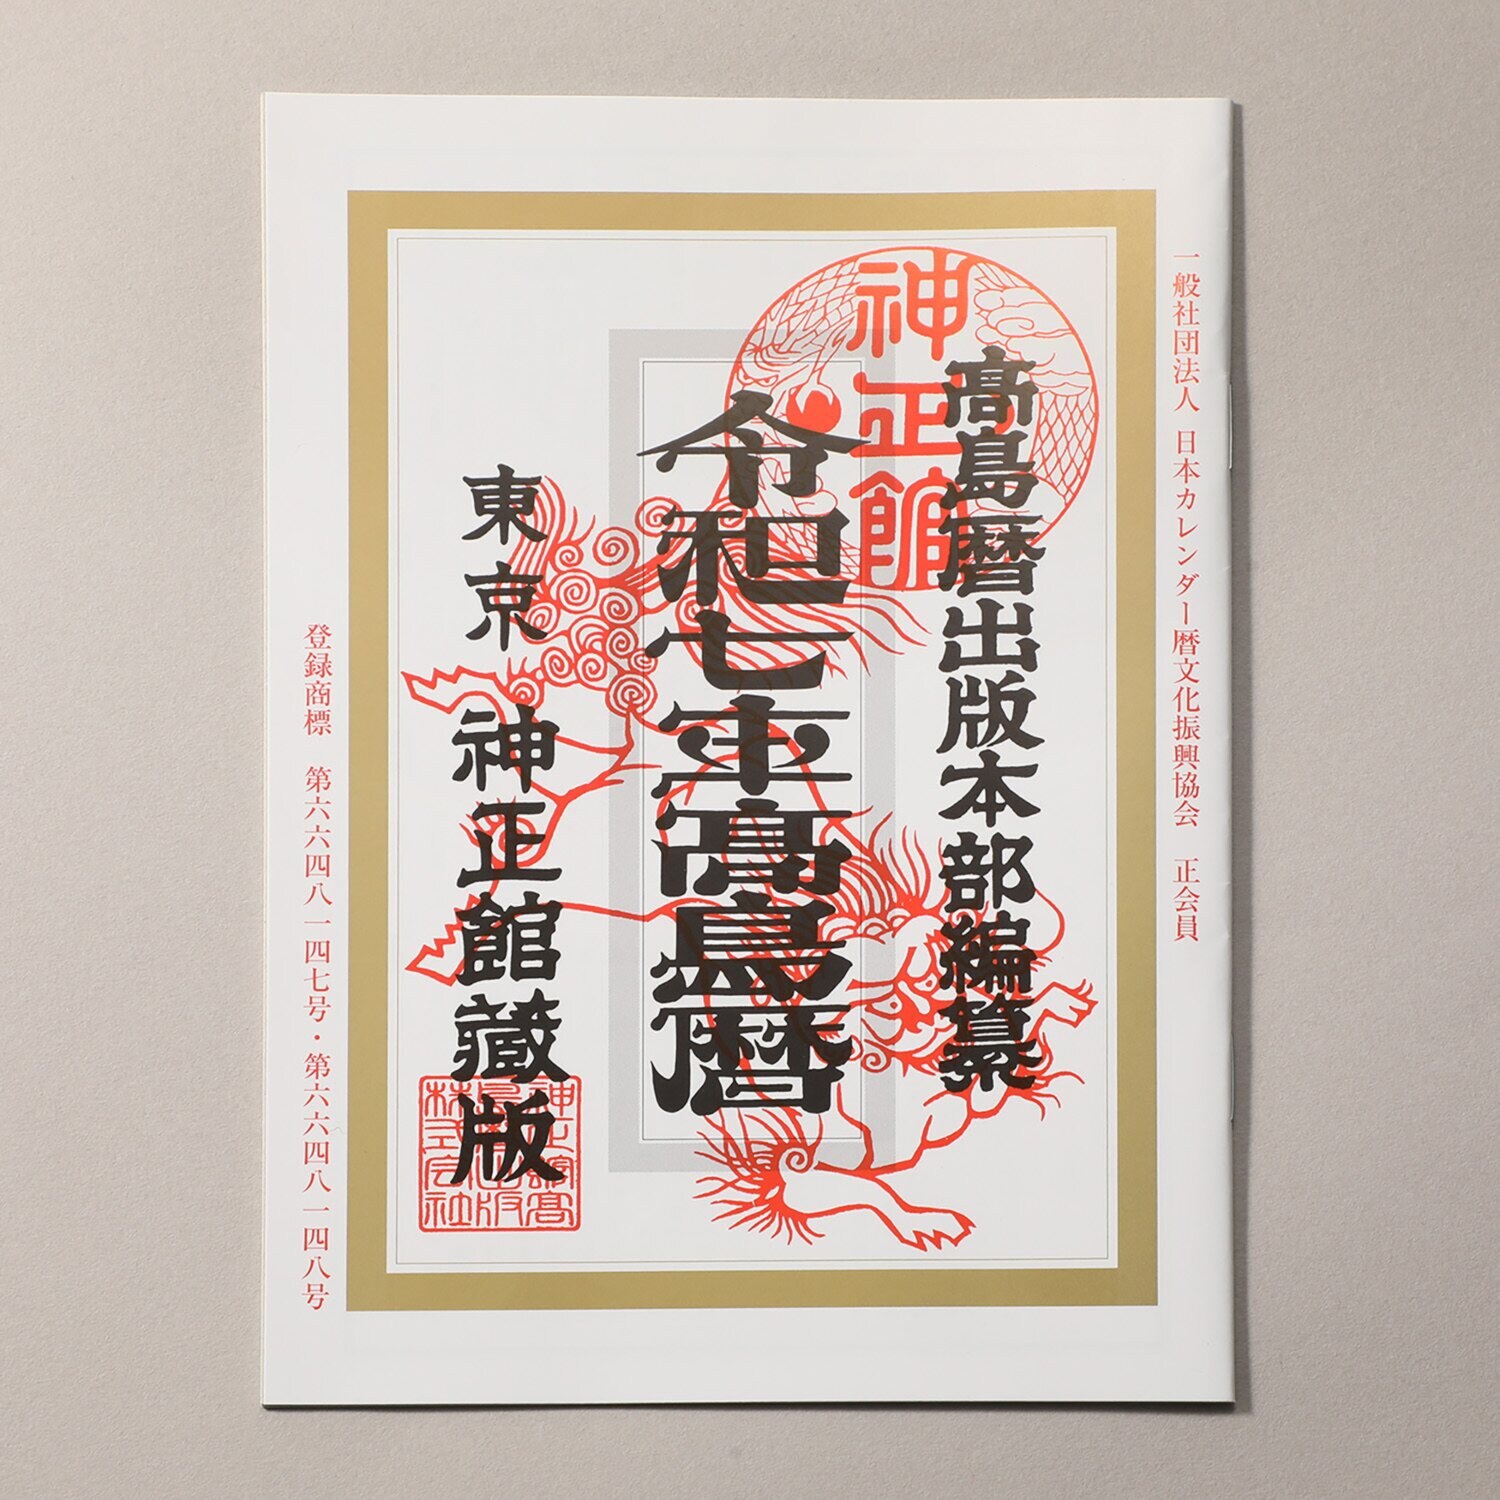 一般社団法人 日本カレンダー暦文化振興協会 正会員
神正館
高島暦出版本部編纂
令和七年高島暦
東京 神正館蔵版
神正館高
島暦出版
株式会社
登録商標 第六六四八一四七号・第六六四八一四八号